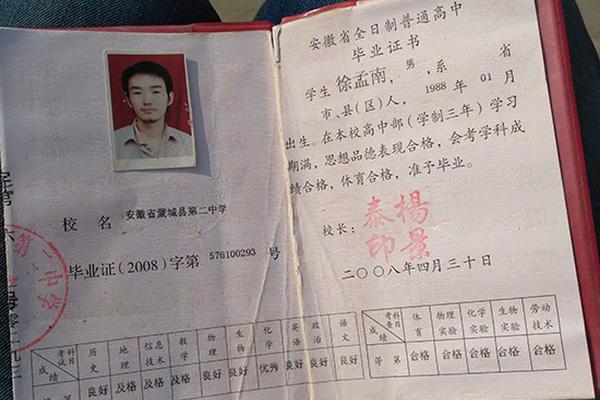 校 名 安徽省蒙城县第二中学
毕业证(2008)字第 576100293 号
考试科目 历史 地理 信息技术 数学 物理 生物 化学 英语 政治 语文
成绩 良好 及格 及格 及格 良好 良好 优秀 良好 良好 良好
安徽省全日制普通高中
毕业证书
学生 徐孟南，男，系 省
市、县(区)人，1988 年 01 月
出生。在本校高中部(学制三年)学习
期满，思想品德表现合格，会考学科成
绩合格，体育合格，准予毕业。
校长：
楊景泰印
二〇〇八年四月三十日
考查科目 体育 物理实验 化学实验 生物实验 劳动技术
成绩
等 第 合格 合格 合格 合格 合格